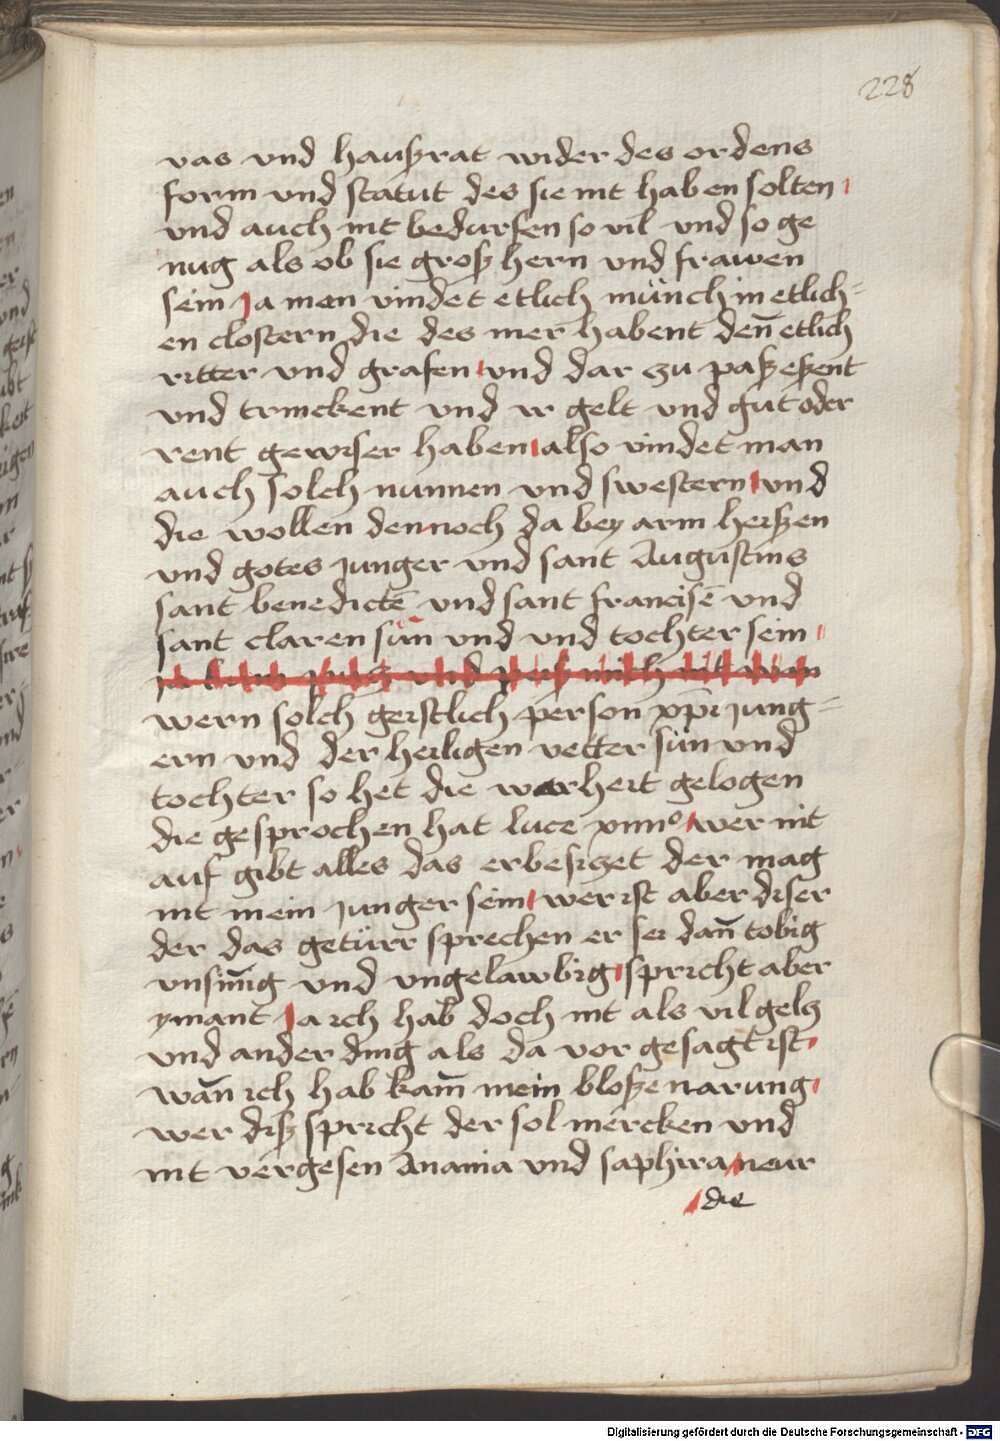 228
vas vnd haußrat wider des ordens
form vnd statut des sie nit haben solten
vnd auch nit bedurfen so vil vnd so ge
nug als ob sie groß hern vnd frawen
sein Ja man vindet etlich münch in etlich=
en clostern die des mer habent den̄ etlich
ritter vnd grafen vnd dar zu paß eßent
vnd trinckent vnd ir gelt vnd gut oder
rent gewiser haben also vindet man
auch solch nunnen vnd swestern vnd
die wollen dennoch da bey arm heißen
vnd gotes junger vnd sant Augustins
sant benedictē vnd sant francisē vnd
sant claren sün vnd vnd tochter sein
wern solch geistlich person xp̄i jung=
ern vnd der heiligen vetter sün vnd
tochter so het die warheit gelogen
die gesprochen hat luce xiiiiº wer nit
auf gibt alles das er besiczet der mag
nit mein junger sein wer ist aber diser
der das getürr sprechen er sei dan̄ tobig
vnsin̄ig vnd vngelawbig spricht aber
ymant Ja ich hab doch nit als vil gelcz
vnd ander ding als da vor gesagt ist
wan̄ ich hab kam̄ mein bloße narung
wer diß spricht der sol mercken vnd
nit vergesen Anania vnd saphira neur
die
Digitalisierung gefördert durch die Deutsche Forschungsgemeinschaft - DFG